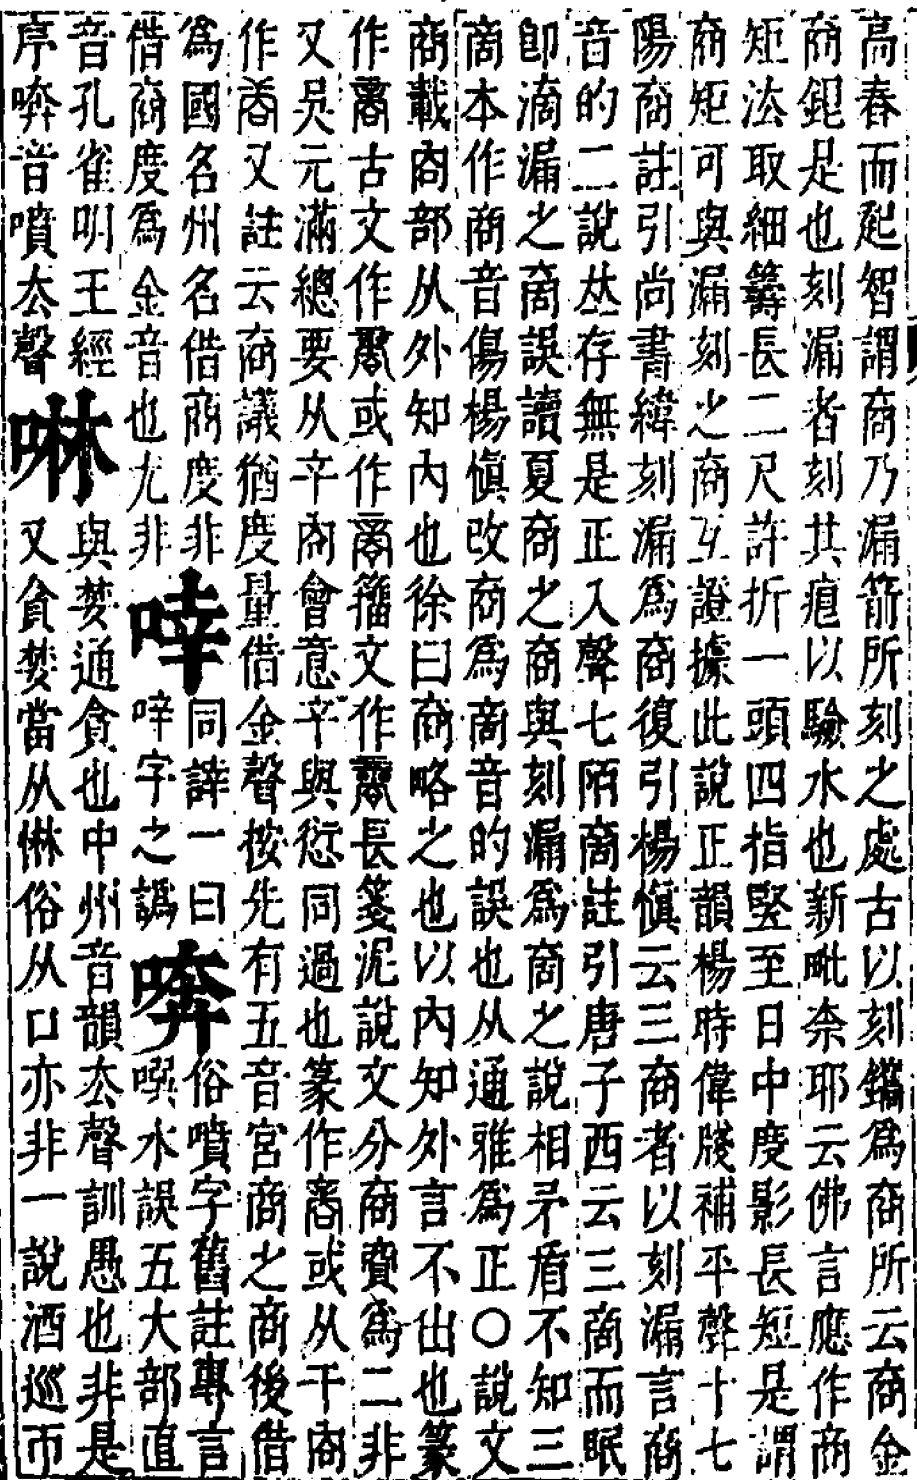 高舂而起智謂商乃漏箭所刻之處古以刻鐫爲商所云商金
商鈤是也刻漏者刻其痕以驗水也新毗奈耶云佛言應作商
矩法取細籌長二尺許折一頭四指豎至日中度影長短是謂
商矩可與漏刻之商互證據此說正韻楊時偉牋補平聲十七
陽商註引尚書緯刻漏爲商復引楊愼云三商者以刻漏言商
音的二說𠀤存無是正入聲七陌啇註引唐子西云三啇而眠
卽滴漏之啇誤讀夏商之商與刻漏爲啇之說相矛盾不知三
啇本作商音傷楊愼改商爲啇音的誤也从通雅爲正○說文
商載㕯部从外知內也徐曰商略之也以內知外言不出也篆
作𠹧古文作𠾃或作𠿧籀文作𡄚長箋泥說文分商賣爲二非
又吳元滿總要从䇂㕯會意䇂與愆同過也篆作啻或从干㕯
作啇又註云商議猶度量借金聲按先有五音宮商之商後借
爲國名州名借商度非
借商度爲金音也尤非
㖕
同誶一曰
啐字之譌
㖹
俗噴字舊註專言
噀水誤五大部直
音孔雀明王經
序㖹音噴去聲
啉
與婪通貪也中州音韻去聲訓愚也非是
又貪婪當从惏俗从口亦非一說酒巡帀